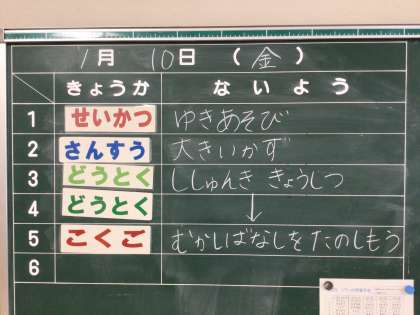 1月 10日 (金)
きょうか ないよう
1 せいかつ ゆきあそび
2 さんすう 大きいかず
3 どうとく ししゅんき きょうしつ
4 どうとく ↓
5 こくご むかしばなしをたのしもう
6